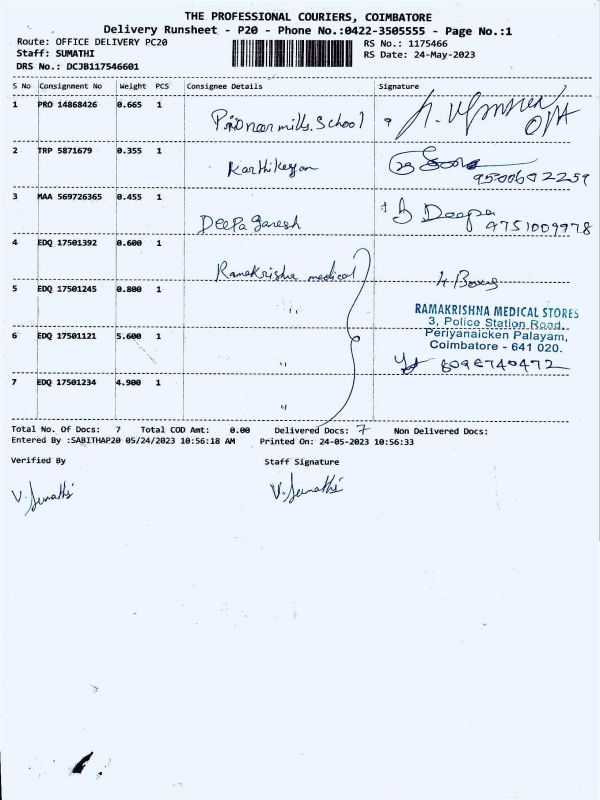 THE PROFESSIONAL COURIERS, COIMBATORE
Delivery Runsheet - P20 - Phone No.:0422-3505555 - Page No.:1
Route: OFFICE DELIVERY PC20
RS No.: 1175466
Staff: SUMATHI
RS Date: 24-May-2023
DRS No.: DCJB117546601
S No Consignment No Weight PCS Consignee Details Signature
1 PRO 14868426 0.665 1
Pionoor mills. School
2 TRP 5871679 0.355 1
Karthikeyan
9500602259
3 MAA 569726365 0.455 1
Deepa Ganesh
Deepa
9751009978
4 EDQ 17501392 0.600 1
Ramakrishna medical
4 Boxes
5 EDQ 17501245 0.800 1
"
RAMAKRISHNA MEDICAL STORES
3, Police Station Road,
Periyanaicken Palayam,
Coimbatore - 641 020.
6 EDQ 17501121 5.600 1
"
8098740472
7 EDQ 17501234 4.900 1
"
Total No. Of Docs: 7 Total COD Amt: 0.00 Delivered Docs: 7 Non Delivered Docs:
Entered By :SABITHAP20 05/24/2023 10:56:18 AM Printed On: 24-05-2023 10:56:33
Verified By Staff Signature
V. Sumathi V. Sumathi